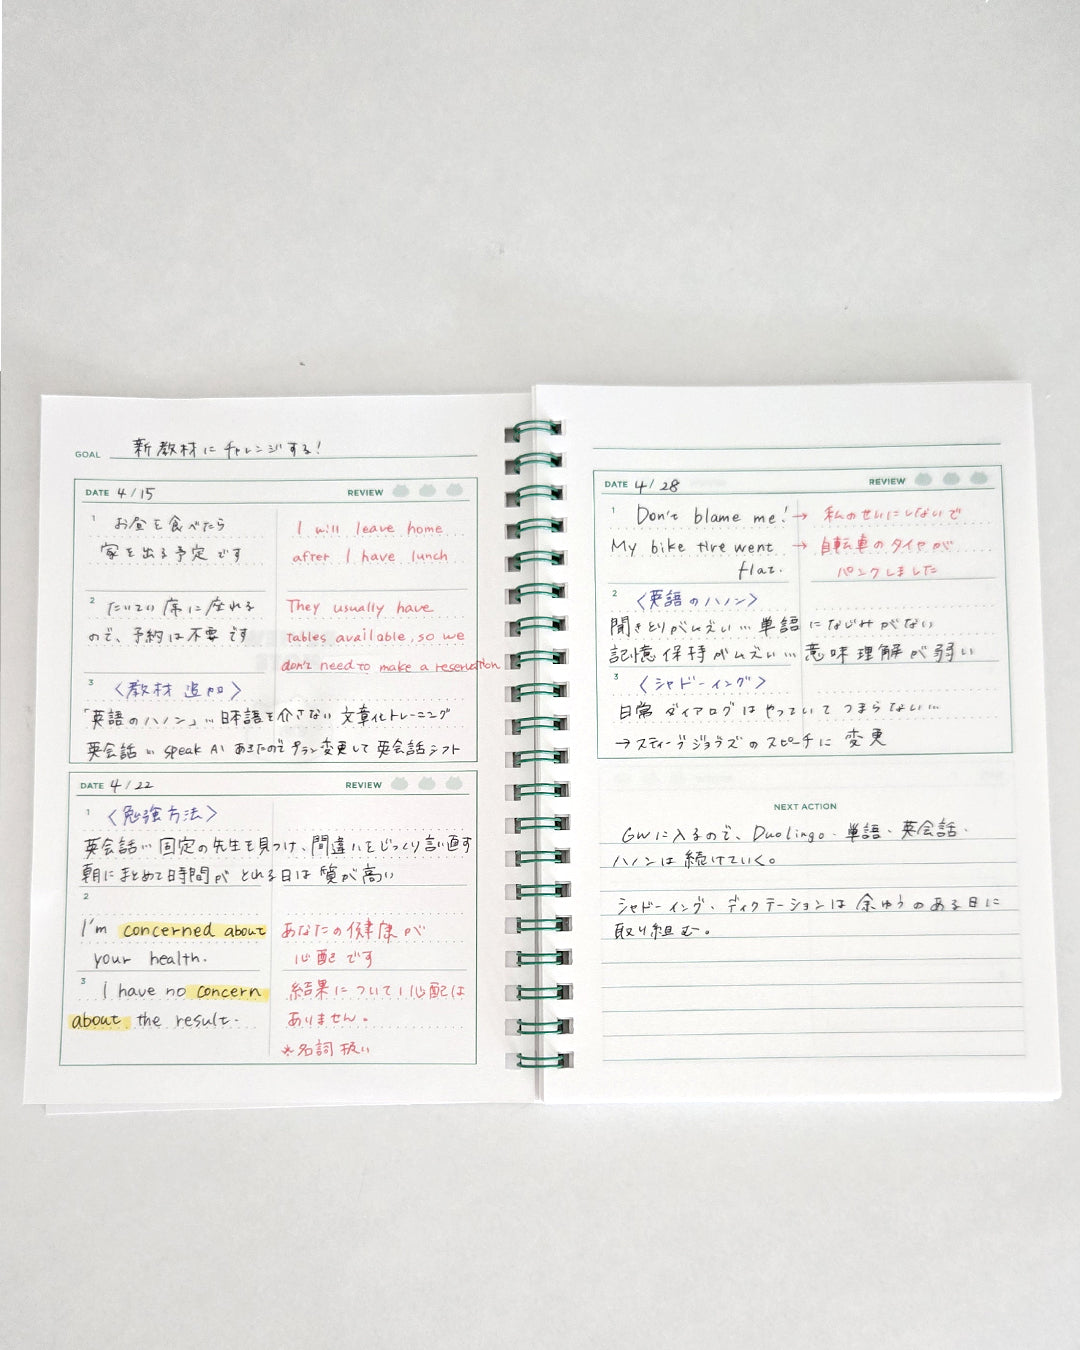 GOAL 新教材にチャレンジする！
DATE 4/15 REVIEW
1 お昼を食べたら
家を出る予定です
I will leave home
after I have lunch
2 たいてい席に座れる
ので、予約は不要です
They usually have
tables available, so we
don't need to make a reservation
3 〈教材追加〉
「英語のハノン」… 日本語を介さない文章化トレーニング
英会話… speak AI あきたのでプラン変更して英会話シフト
DATE 4/22 REVIEW
1 〈勉強方法〉
英会話… 固定の先生を見つけ、間違いをじっくり言い直す
朝にまとめて時間がとれる日は質が高い
2
I'm concerned about
your health.
あなたの健康が
心配です
3 I have no concern
about the result.
結果について心配は
ありません。
*名詞扱い
DATE 4/28 REVIEW
1 Don't blame me! → 私のせいにしないで
My bike tire went → 自転車のタイヤが
flat. パンクしました
2 〈英語のハノン〉
聞きとりがムズい… 単語になじみがない
記憶保持がムズい… 意味理解が弱い
3 〈シャドーイング〉
日常ダイアログはやっていてつまらない…
→スティーブジョブズのスピーチに変更
NEXT ACTION
GWに入るので、Duolingo・単語・英会話・
ハノンは続けていく。
シャドーイング、ディクテーションは余ゆうのある日に
取り組む。